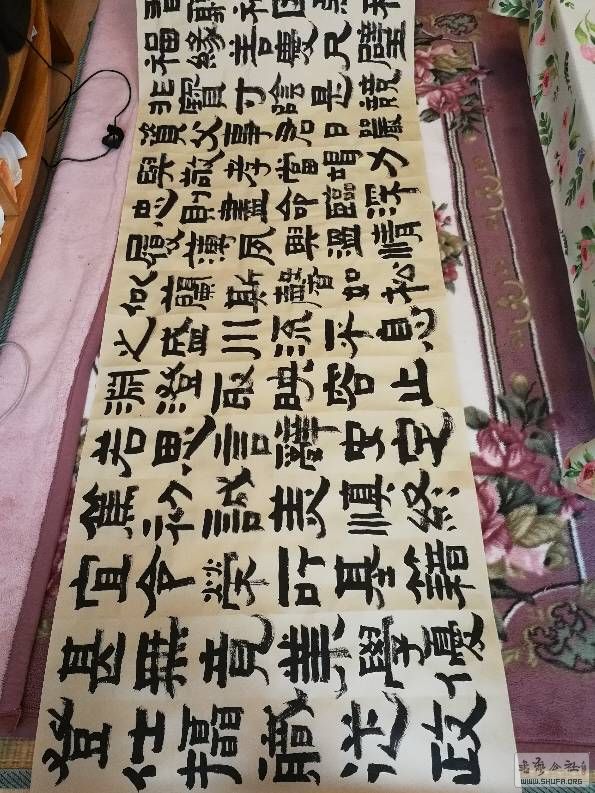 福緣善慶尺璧
非寶寸陰是競
資父事君曰嚴
與敬孝當竭力
忠則盡命臨深
履薄夙興溫情
似蘭斯馨如松
之盛川流不息
淵澄取映容止
若思言辭安定
篤初誠美慎終
宜令榮所基籍
甚無竟業學優
登仕攝職從政
WWW.SHUFA.ORG